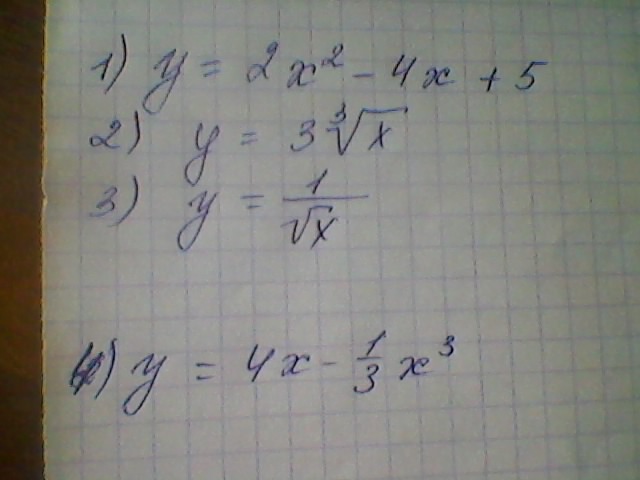 1) y = 2x² - 4x + 5
2) y = 3∛x
3) y = 1/√x
4) y = 4x - 1/3 x³